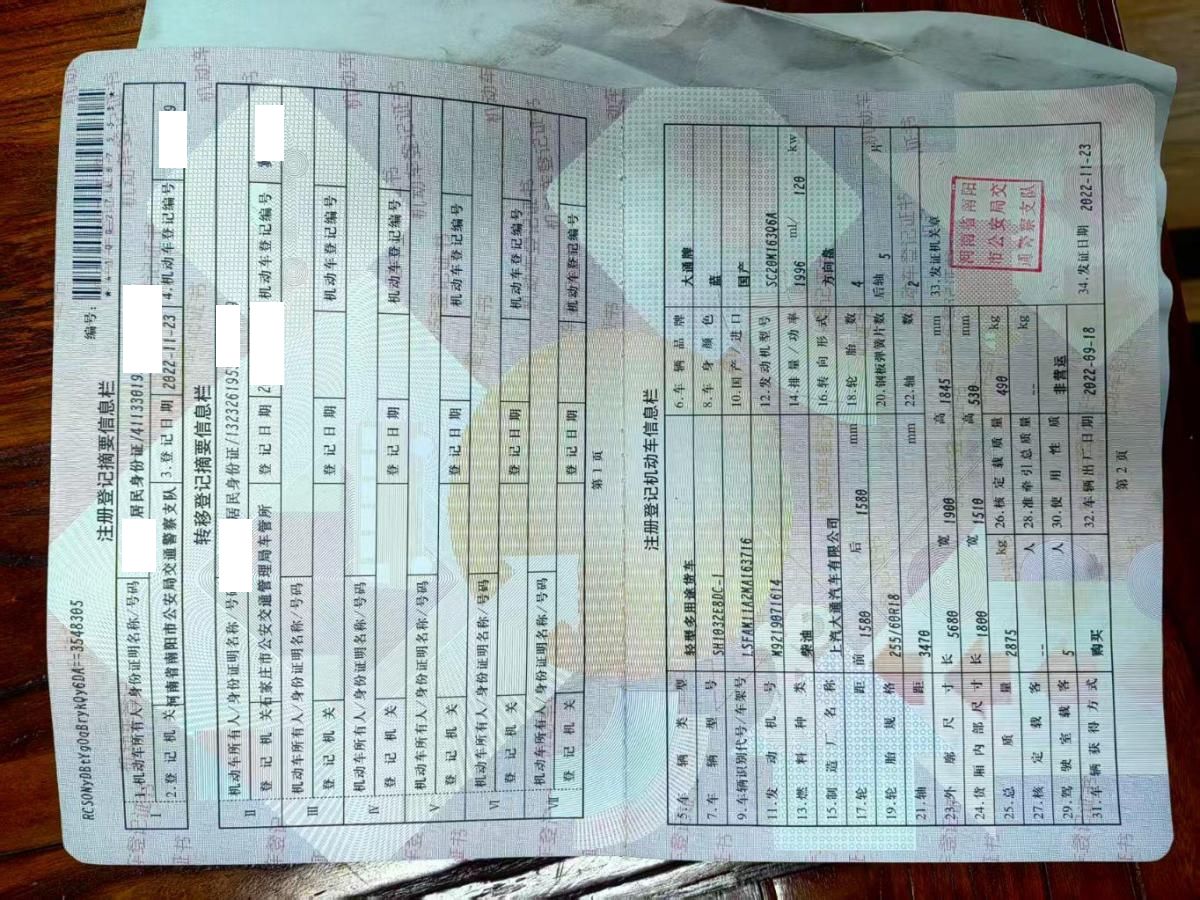 RCSONyDBtYgOqBrykQy6DA==3548305
编号:
注册登记摘要信息栏
Ⅰ 1.机动车所有人/身份证明名称/号码 居民身份证/41133019
2.登记机关 河南省南阳市公安局交通警察支队 3.登记日期 2022-11-23 4.机动车登记编号 9
转移登记摘要信息栏
Ⅱ 机动车所有人/身份证明名称/号码 居民身份证/132326195 9
登记机关 石家庄市公安交通管理局车管所 登记日期 2 机动车登记编号
Ⅲ 机动车所有人/身份证明名称/号码
登记机关 登记日期 机动车登记编号
Ⅳ 机动车所有人/身份证明名称/号码
登记机关 登记日期 机动车登记编号
Ⅴ 机动车所有人/身份证明名称/号码
登记机关 登记日期 机动车登记编号
Ⅵ 机动车所有人/身份证明名称/号码
登记机关 登记日期 机动车登记编号
Ⅶ 机动车所有人/身份证明名称/号码
登记机关 登记日期 机动车登记编号
第1页
注册登记机动车信息栏
5.车辆类型 轻型多用途货车 6.车辆品牌 大通牌
7.车辆型号 SH1032E8DC-1 8.车身颜色 蓝
9.车辆识别代号/车架号 LSFAM11A2MA163716 10.国产/进口 国产
11.发动机号 M9219071614 12.发动机型号 SC20M163Q6A
13.燃料种类 柴油 14.排量/功率 1996 ml/ 120 kw
15.制造厂名称 上汽大通汽车有限公司 16.转向形式 方向盘
17.轮距 前 1580 后 1580 mm 18.轮胎数 4
19.轮胎规格 255/60R18 20.钢板弹簧片数 后轴 5 片
21.轴距 3470 mm 22.轴数 2
23.外廓尺寸 长 5680 宽 1900 高 1845 mm 33.发证机关章
24.货厢内部尺寸 长 1800 宽 1510 高 530 mm
25.总质量 2875 kg 26.核定载质量 490 kg
27.核定载客 -- 人 28.准牵引总质量 -- kg
29.驾驶室载客 5 人 30.使用性质 非营运
31.车辆获得方式 购买 32.车辆出厂日期 2022-09-18 34.发证日期 2022-11-23
河南省南阳
市公安局交
通警察支队
第2页